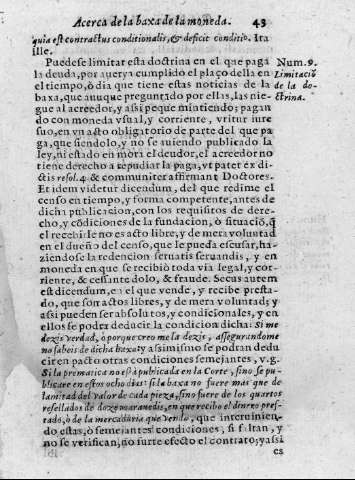 Acerca de la baxa de la moneda. 43
quia est contractus conditionalis, & deficit conditio. Ita
ille.
Puedese limitar esta doctrina en el que paga
la deuda, por auerya cumplido el plaço della en
el tiempo, ò dia que tiene estas noticias de la
baxa, que aunque preguntado por ellas, las nie-
gue al acreedor, y assi peque mintiendo; pagan
do con moneda vsual, y corriente, vritur iure
suo, en vn acto obligatorio de parte del que pa
ga, que siendolo, y no se auiendo publicado la
ley, ni estado en mora el deudor, el acreedor no
tiene derecho a repudiar la paga, vt patet ex di-
ctis resol. 4 & communiter affirmant Doctores.
Et idem videtur dicendum, del que redime el
censo en tiempo, y forma competente, antes de
dicha publicacion, con los requisitos de dere-
cho, y códicíones de la fundacion, ò situació, q̃
el recebirle no es acto libre, y de mera voluntad
en el dueño del censo, que le pueda escusar, ha-
ziendose la redencion seruatis seruandis, y en
moneda en que se recibiò toda via legal, y cor-
riente, & cessante dolo, & fraude. Secus autem
est dicendum, en el que vende, y recibe presta-
do, que son actos libres, y de mera voluntad; y
assi pueden ser absolutos, y condicionales, y en
ellos se podra deducir la condicion dicha: Si me
dezis verdad, ò porque creo me la dezis, assegurandome
no sabeis de dicha baxa; y assimismo se podran dedu
cir en pacto otras condiciones semejantes, v. g.
Si la prematica no està publicada en la Corte, sino se pu-
blicare en estos ocho dias: si la baxa no fuere mas que de
la mitad del valor de cada pieza, sino fuere de los quartos
resellados de doze marauedis, en que recibo el dinero pres-
tado, ò de la mercaduria que vendo, que interuinien-
do estas, ò semejantes condiciones, si faltan, y
no se verifican, no surte efecto el contrato; y assi
es
Num. 9.
Limitaciō
de la do-
ctrina.